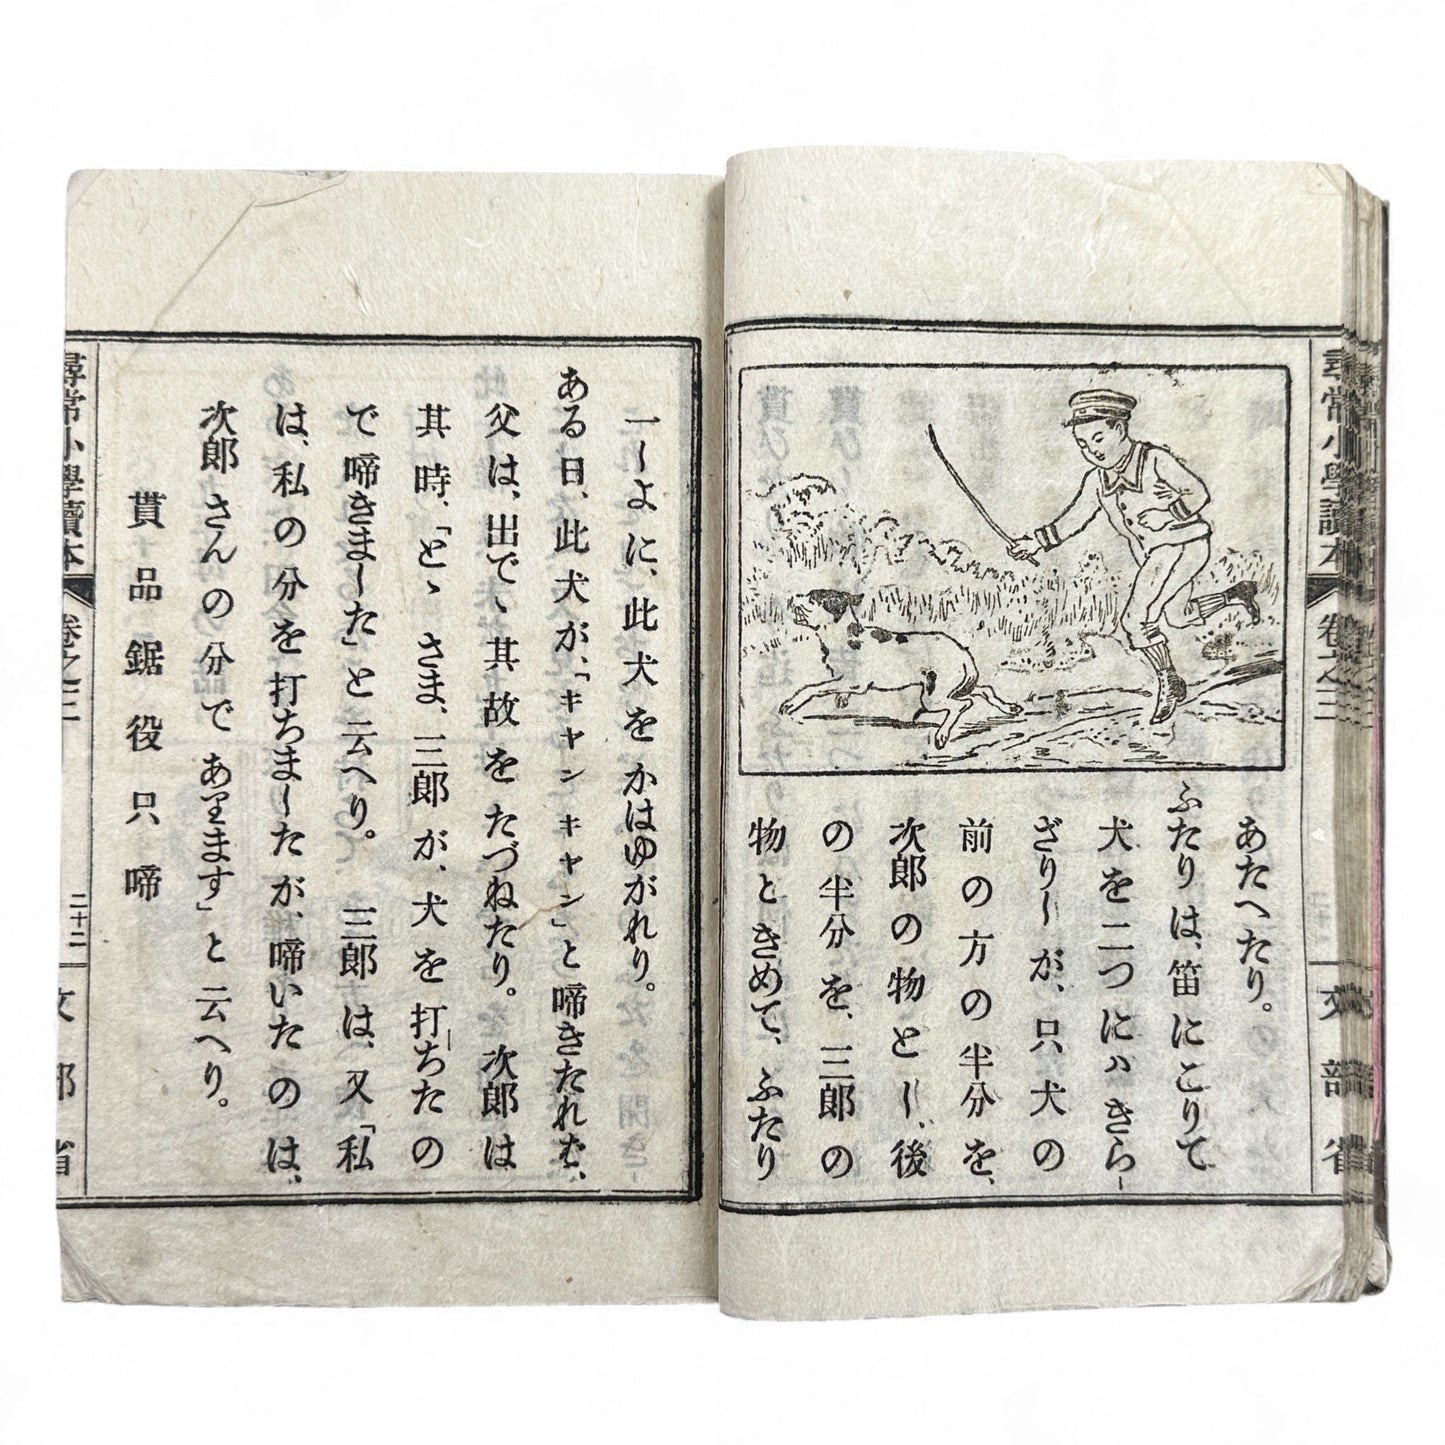 尋常小學讀本 卷之三 文部省
あたへたり。
ふたりは、笛にこりて
犬を二つにハきら-
ざりしが、只、犬の
前の方の半分を、
次郎の物とし、後
の半分を、三郎の
物ときめて、ふたり
一しよに、此犬をかはゆがれり。
ある日、此犬が、「キヤンキヤン」と啼きたれば、
父は、出で、其故をたづねたり。 次郎は
其時、「とゝさま、三郎が、犬を打ちたの
で啼きました」と云へり。 三郎は、又「私
は、私の分を打ちましたが、啼いたのは、
次郎さんの分であります」と云へり。
貰 品 鋸 役 只 啼
尋常小學讀本 卷之三 二十二 文部省